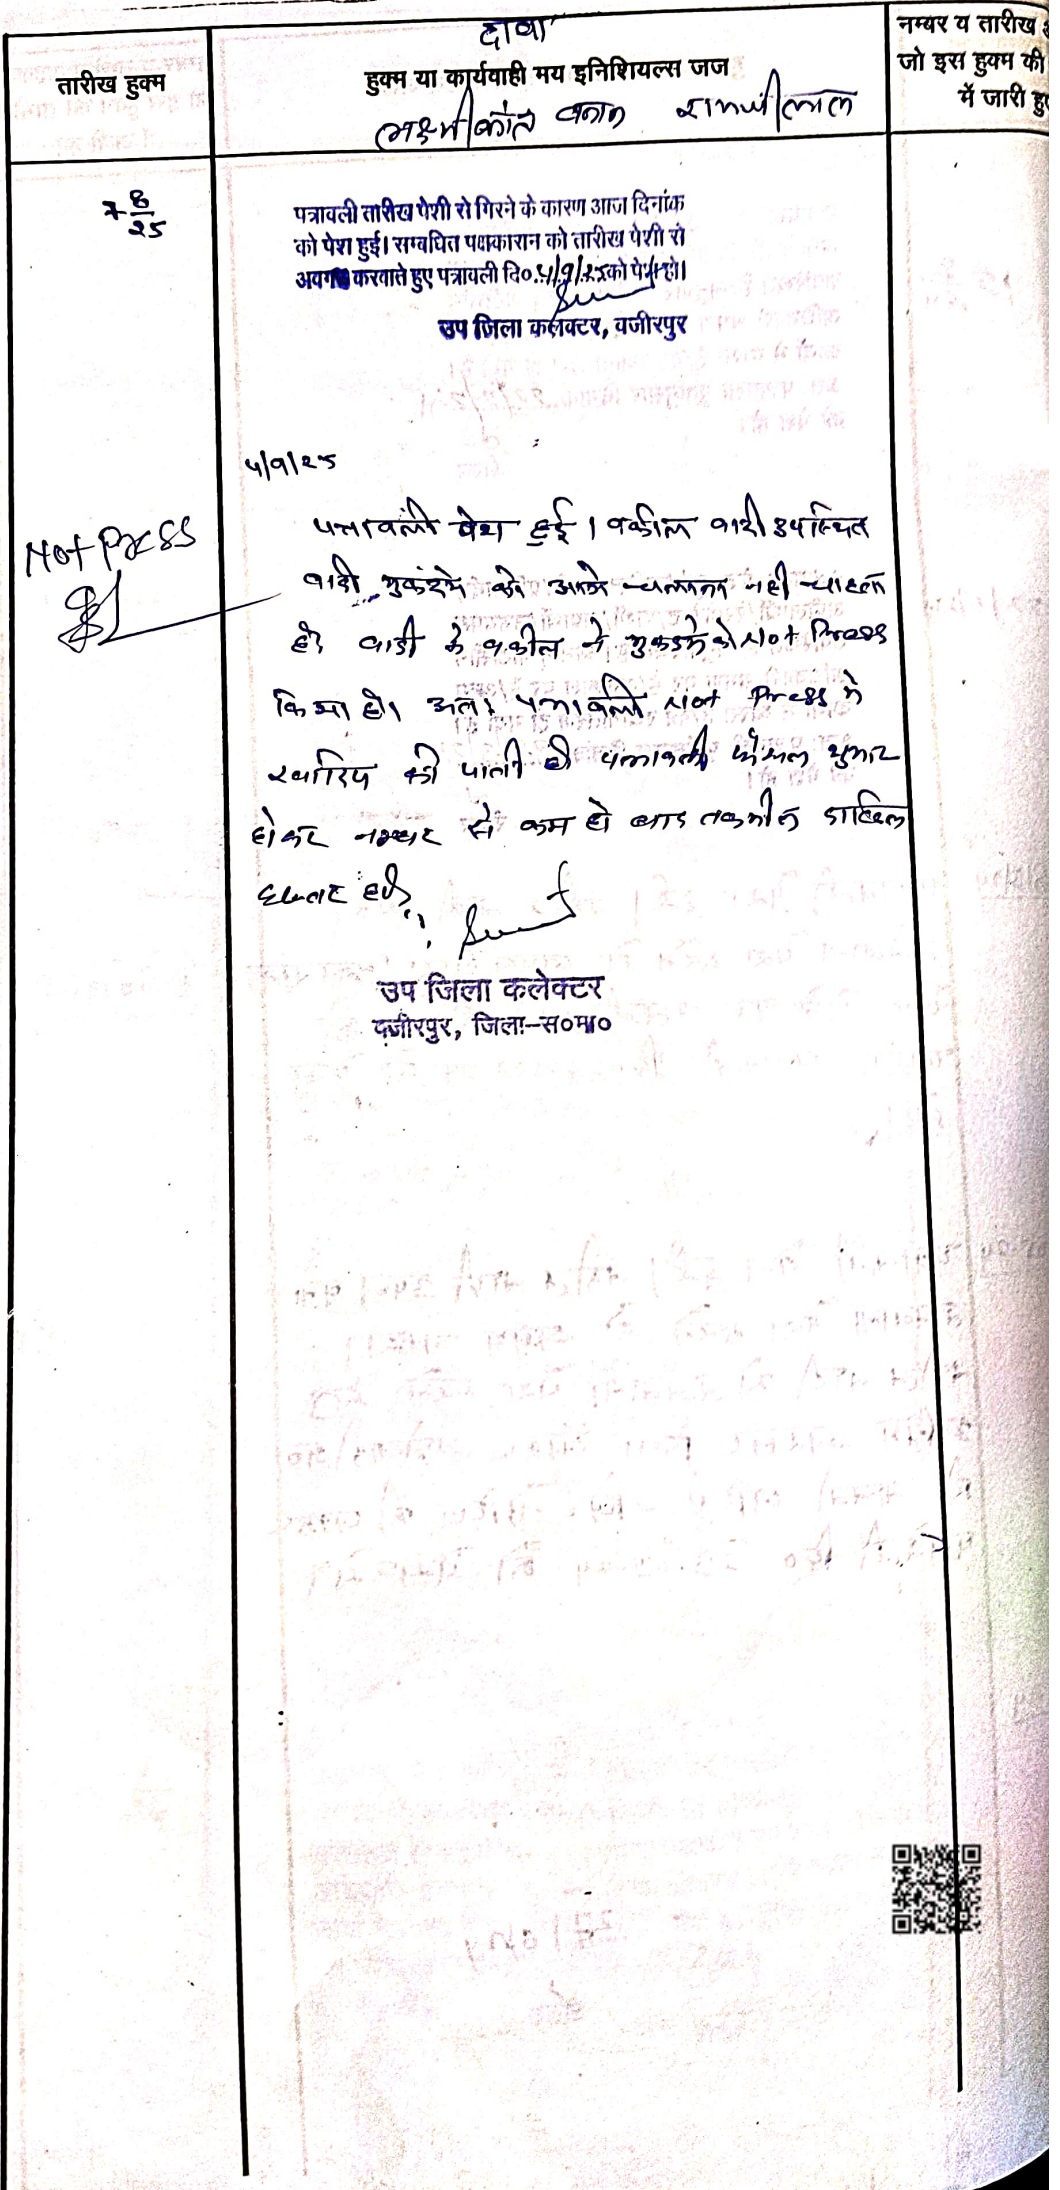 दावा
तारीख हुक्म
हुक्म या कार्यवाही मय इनिशियल्स जज
नम्बर व तारीख
जो इस हुक्म की
में जारी हु
लक्ष्मीकांत बनाम रामजीलाल
7 8/25
पत्रावली तारीख पेशी से गिरने के कारण आज दिनांक
को पेश हुई। सम्बंधित पक्षकारान को तारीख पेशी से
अवगत करवाते हुए पत्रावली दि०.4/9/25को पेश हो।
उप जिला कलेक्टर, वजीरपुर
4/9/25
Not Press
पत्रावली पेश हुई। वकील वादी उपस्थित
वादी मुकदमे को आगे चलाना नही चाहता
है। वादी के वकील ने मुकदमे को Not Press
किया है। अतः पत्रावली Not Press मे
खारिज की जाती है पत्रावली फैसल शुमार
होकर नम्बर से कम हो बाद तकमील दाखिल
दफ्तर हो।
उप जिला कलेक्टर
वजीरपुर, जिला-स०मा०